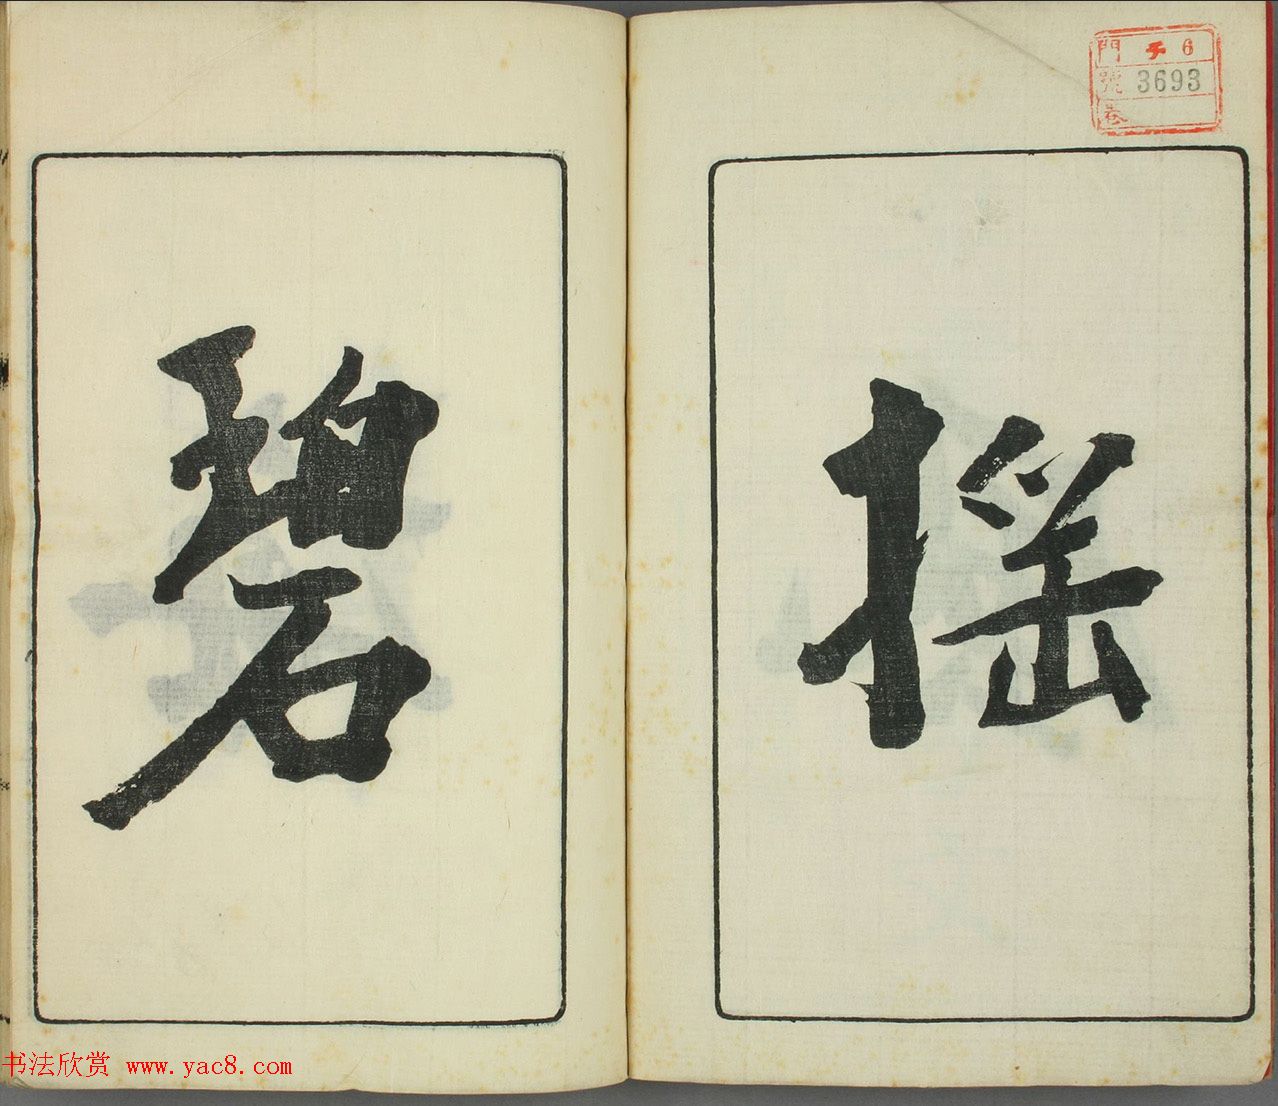 搖
碧
門 チ 6
號 3693
卷
书法欣赏 www.yac8.com